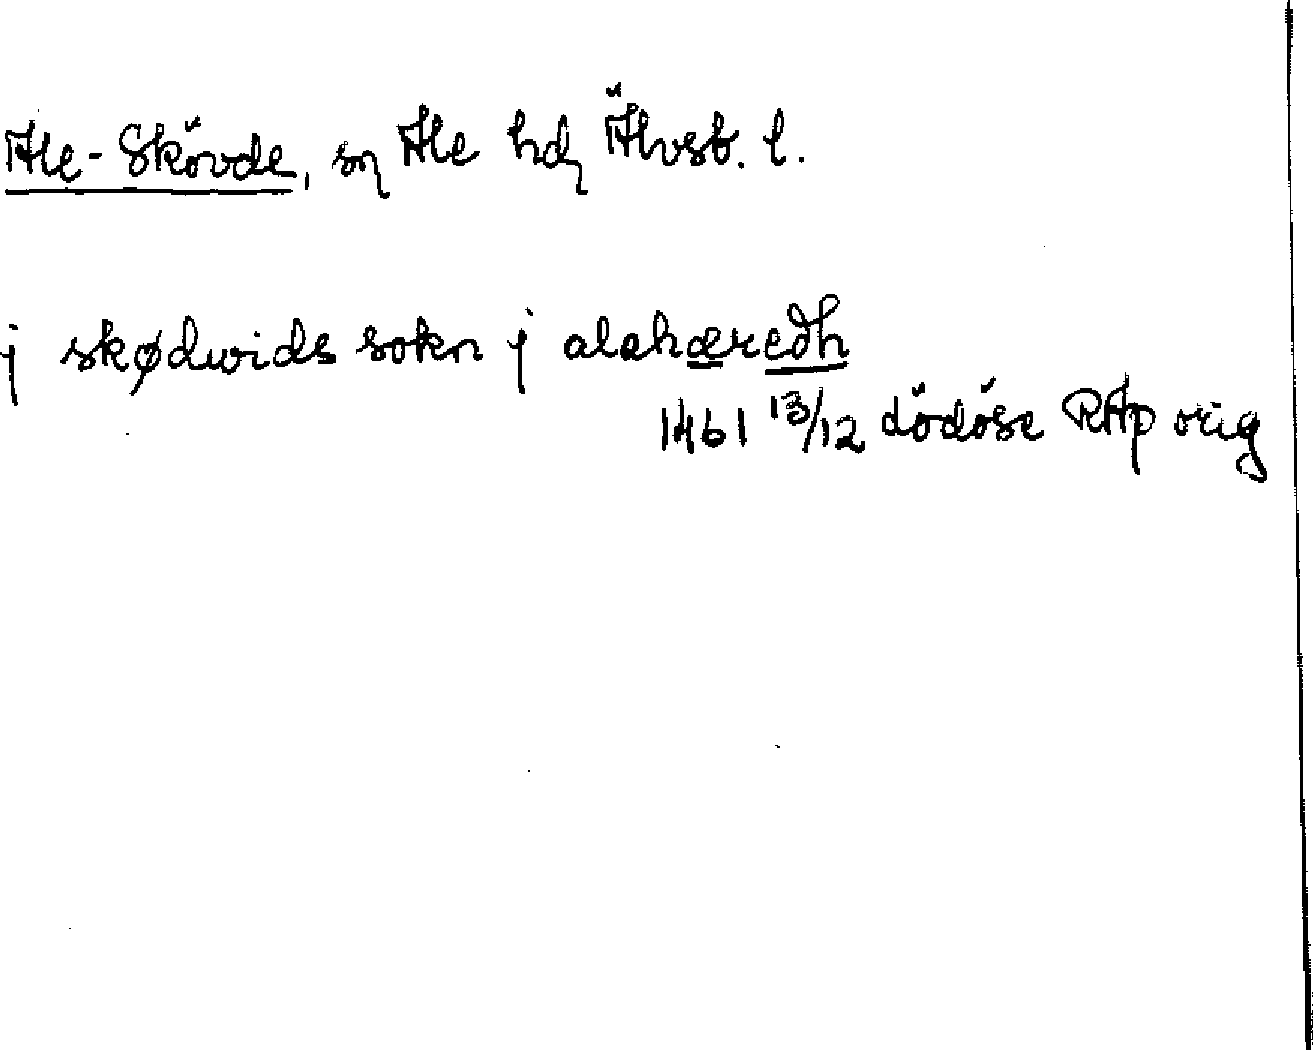 Ale-Skövde, sn Ale hd Älvsb. l.
j skødwids sokn j alahæredh
1461 13/12 Lödöse RAp orig